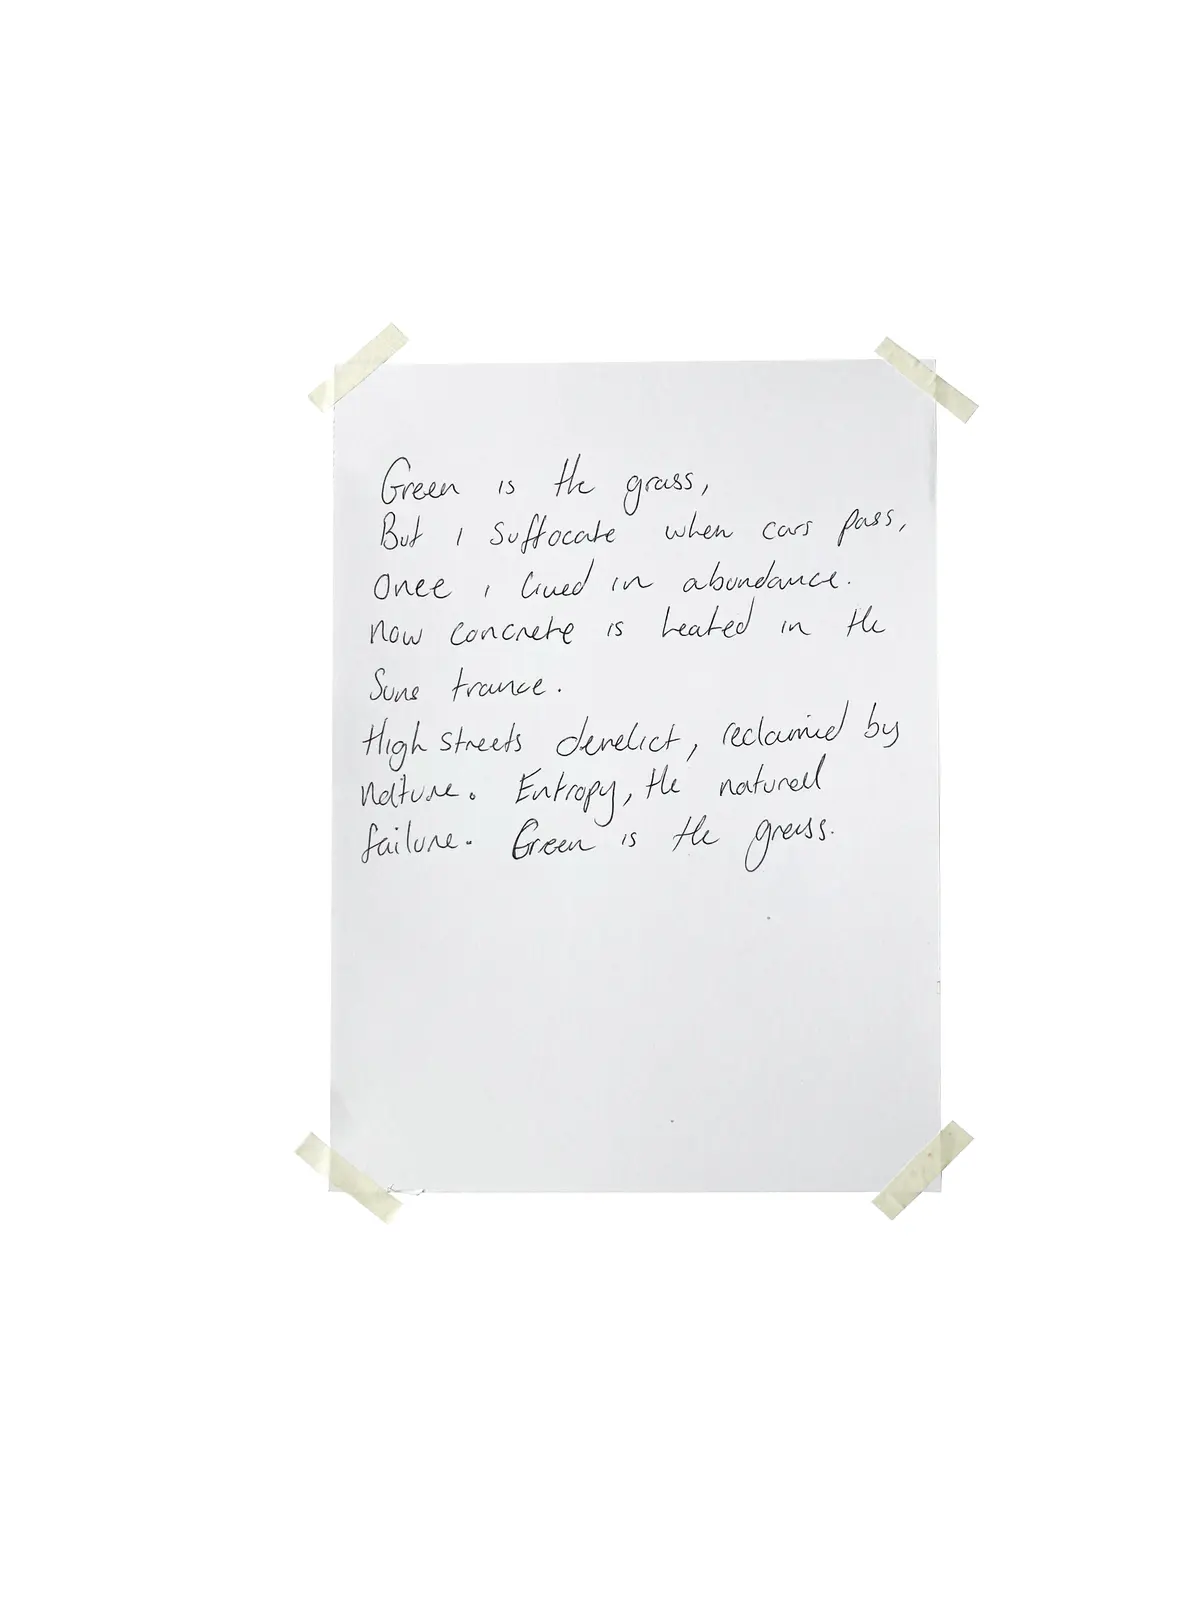 Green is the grass,
But i suffocate when cars pass,
once i lived in abundance.
now concrete is heated in the
suns trance.
High streets derelict, reclaimed by
nature. Entropy, the natural
failure. Green is the grass.